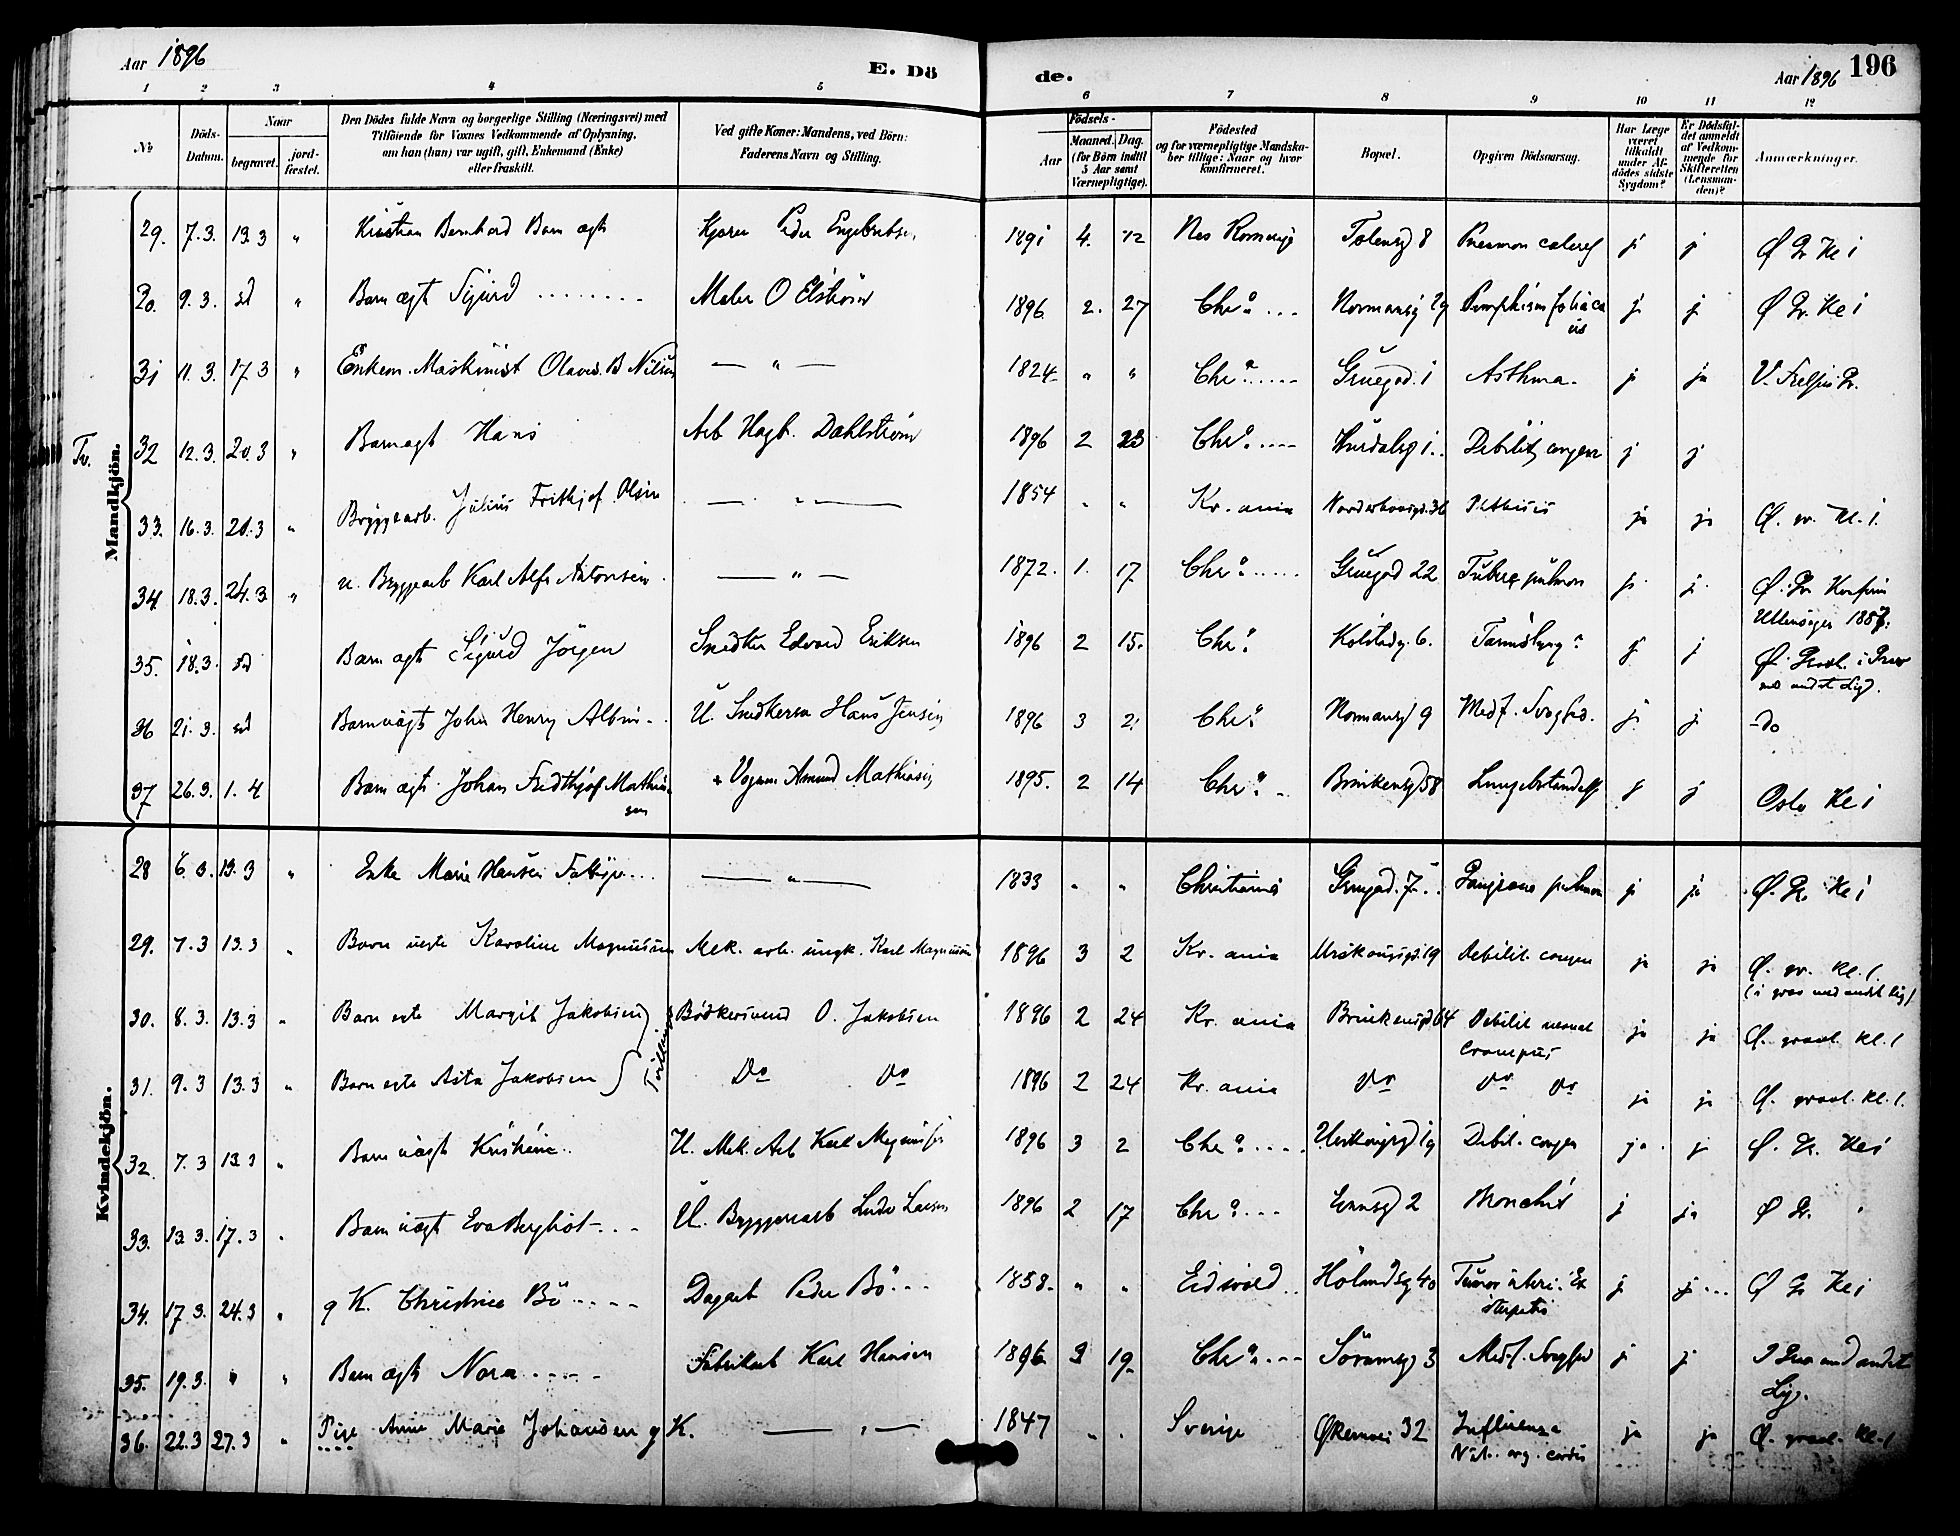 Aar 1896
E. Dö
de.
Aar 1896 196
1 2 3 4 5 6 7 8 9 10 11 12
No
Döds-Datum.
Naar
begravet.
jord-fæstet.
Den Dödes fulde Navn og borgerlige Stilling (Næringsvei) med
Tilföiende for Voxnes Vedkommende af Oplysning,
om han (hun) var ugift, gift, Enkemand (Enke)
eller fraskilt.
Ved gifte Koner: Mandens, ved Börn:
Faderens Navn og Stilling.
Födsels-
Aar
Maaned. Dag.
(for Börn indtil
5 Aar samt
Værnepligtige).
Födested
og for værnepligtige Mandska-
ber tillige: Naar og hvor
konfirmeret.
Bopæl.
Opgiven Dödsaarsag.
Har Læge
været
tilkaldt
under Af-
dödes sidste
Sygdom?
Er Dödsfal-
det anmeldt
af Vedkom-
mende for
Skifteretten
(Lensman-
den)?
Anmærkninger.
Mandkjön.
29. 7.3. 13.3 " Kristian Bernhard Barn ægt Kjører Peder Engebretsen 1891 4. 12 Nes Romerige 8 Pneumon j j Ø Gr Kl 1
30. 9.3. sd " Barn ægt Sigurd Maler O Elström 1896 2. 27 Chr.a Normansg 29 Pemphigus foliaceus j j Ø Gr. Kl 1
31 11.3. 17 3 " Enkem. Maskinist Olaves B Nilsen — " — 1824 " " Chr.a Gruegad. 1 Asthma. j ja V. Frelsers Gr.
Tv. 32 12.3. 20.3 " Barn ægt Hans Arb Hagb. Dahlström 1896 2 23 Chr.a Hurdalsg 1 Debilit congen j j
33. 16.3. 20.3 " Bryggearb. Julius Frithjof Olsen — " — 1854 " " Kr. ania Norderhovsgd. 36 Phthisis ja ja Ø. gr. kl. 1.
34. 18.3. 24.3 " u. Bryggearb Karl Alfr Antonsen — " — 1872. 1. 17 Chr.a Gruegad 22 Tuberc pulmon j. j. Ø. Gr Konfirm
Ullensager 1887.
35. 18.3. sd Barn ægt Sigurd Jörgen Snedker Edvard Eriksen 1896 2 15. Chr.a Kolstadg. 6. j j Ø. Gravl. i Grav
med andet Lig.
36 21.3. sd Barn uægt John Henry Albin U. Snedkersv Hans Jensen 1896 3 2. Chr.a Normansg 9 Medf. Svaghed. j j -do
37 26.3. 1.4 Barn ægt. Johan Fridthjof Mathisen Vognm Amund Mathisen 1895. 2 14 Chr.a Brinkensg 58 j j Oslo Kl 1
Kvindekjön.
28 6.3. 13.3 " Enke Marie Hansen — " — 1833 " " Christiania Gruegad. 7. Gangræna pulmon j ja Ø. Gr Kl 1
29. 7.3 13.3 " Barn uegte Karoline Magnusen Mek. arb. ungk. Karl Magnusen 1896 3 2 Kr. ania Urskougsgd. 19 Debilit. congen ja ja Ø. gr. kl. 1.
(i grav med andet lig).
30. 8.3. 13.3 " Barn egte Margit Jakobsen Bödkersvend O. Jakobsen 1896 2 24 Kr. ania Brinkensgd 64 Debilit neonat
Crampus ja ja Ø. gravl. kl. 1
Tvillinger
31. 9.3 13.3 " Barn egte Asta Jakobsen Do Do 1896 2 24 Kr. ania Do Do Do ja ja Ø. gravl. kl. 1.
32 7.3 13.3 " Barn uægt Kristine U. Mek. Arb Karl Magnusen 1896 3 2 Chr.a Urskougsgd 19 Debil. congen ja j Ø. Gr. Kl 1
33. 13.3. 17.3 " Barn uægt Eva Bergliot U. Bryggearb Ludv Larsen 1896 2 17 Chr.a 2 Bronchit j ja Ø Gr.
34. 17.3. 24.3 " g K. Christine Bö Dagarb Peder Bö 1858. " " Eidsvold Hölandsg 40 Tumor uteri. j j Ø Gr Kl 1
35. 19.3. " " Barn ægt Nora Fabrikarb Karl Hansen 1896 3 19 Chr.a Söramsg 3 Medf. Svaghed j j I Grav med andet
Lig.
36. 22.3 27.3 " Pige Anne Marie Johansen g K. — " — 1847 " " Sverige Økernvei 32 Influenza
Vit. org. cordis ja ja Ø. gravl. kl. 1